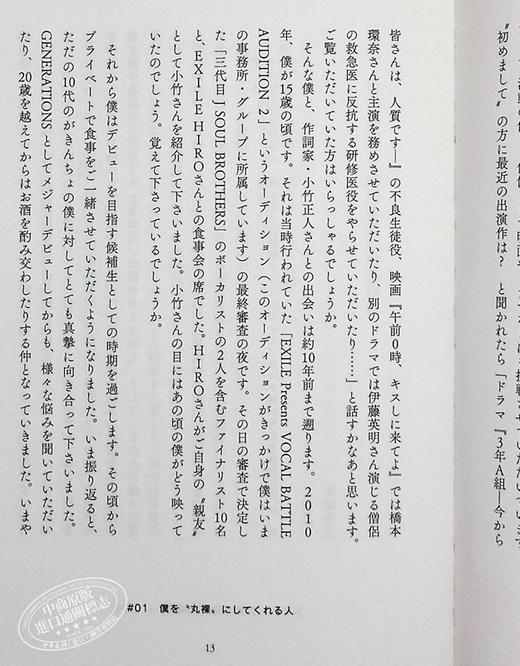 〝初めまして〟の方に最近の出演作は? と聞かれたら「ドラマ『3年A組―今から
皆さんは、人質です―』の不良生徒役、映画『午前0時、キスしに来てよ』では橋本
環奈さんと主演を務めさせていただいたり、別のドラマでは伊藤英明さん演じる僧侶
の救急医に反抗する研修医役をやらせていただいたり……」と話すかなあと思います。
ご覧いただいていた方はいらっしゃるでしょうか。
そんな僕と、作詞家・小竹正人さんとの出会いは約10年前まで遡ります。2010
年、僕が15歳の頃です。それは当時行われていた「EXILE Presents VOCAL BATTLE
AUDITION 2」というオーディション(このオーディションがきっかけで僕はいま
の事務所・グループに所属しています)の最終審査の夜です。その日の審査で決定し
た「三代目 J SOUL BROTHERS」のボーカリストの2人を含むファイナリスト10名
と、EXILE HIROさんとの食事会の席でした。HIROさんがご自身の〝親友〟
として小竹さんを紹介して下さいました。小竹さんの目にはあの頃の僕がどう映って
いたのでしょう。覚えて下さっているでしょうか。
それから僕はデビューを目指す候補生としての時期を過ごします。その頃から
プライベートで食事をご一緒させていただくようになりました。いま振り返ると、
ただの10代のがきんちょの僕に対してとても真摯に向き合って下さいました。
GENERATIONSとしてメジャーデビューしてからも、様々な悩みを聞いていただい
たり、20歳を越えてからはお酒を酌み交わしたりする仲となっていきました。いまや
#01 僕を〝丸裸〟にしてくれる人
13
中商原版
進口通關標志